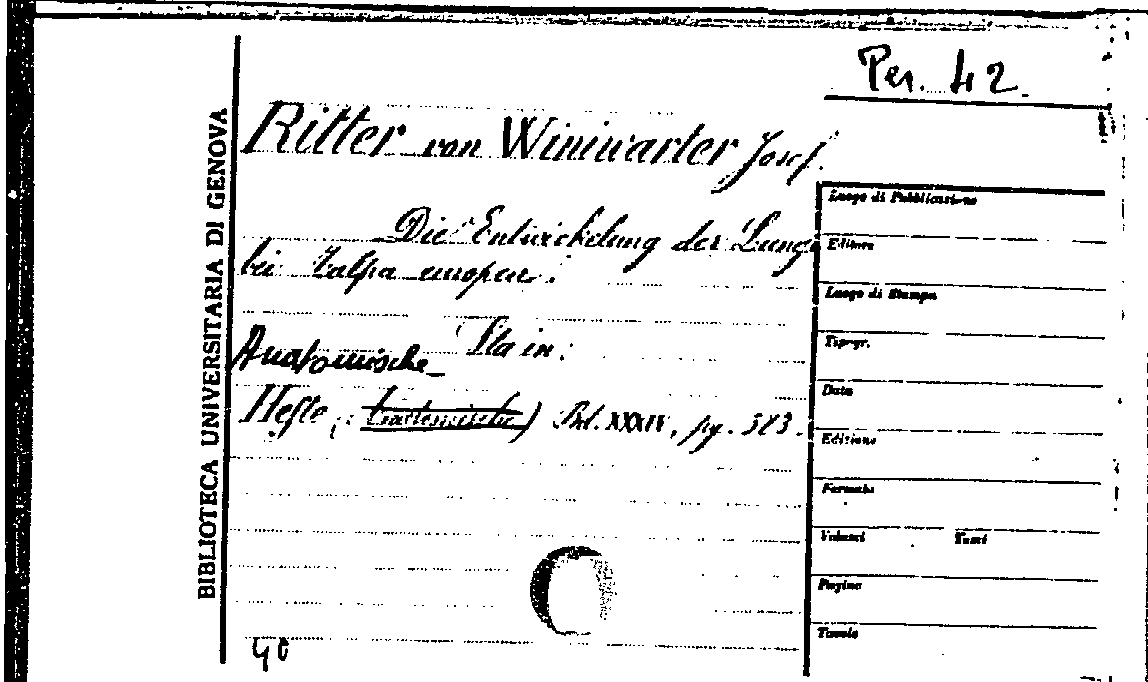 Per. 42.
BIBLIOTECA UNIVERSITARIA DI GENOVA
Ritter von Winiwarter Josef.
Die Entwickelung der Lunge
bei Talpa europea.
Sta in:
Anatomische
Hefte, Bd. XXXIV, pg.
Luogo di Pubblicazione
Editore
Luogo di Stampa
Tipogr.
Data
Edizione
Formato
Volumi Tomi
Pagine
Tavole